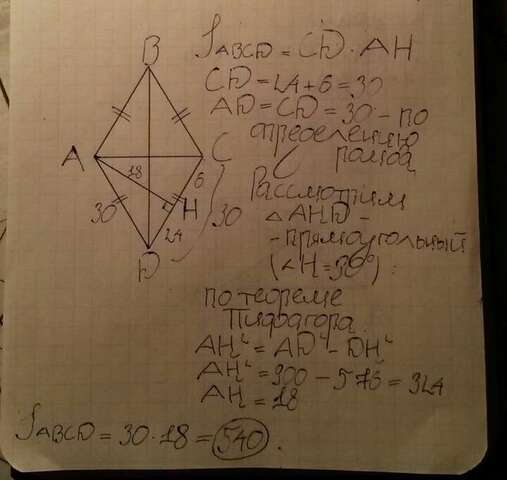 B
A
C
18
6
H
30
24
30
D
SABCD = CD · AH
CD = 24 + 6 = 30
AD = CD = 30 - по
определению
ромба
Рассмотрим
△AHD -
- прямоугольный
(∠H = 90°) :
по теореме
Пифагора
AH² = AD² - DH²
AH² = 900 - 576 = 324
AH = 18
SABCD = 30 · 18 = 540 .